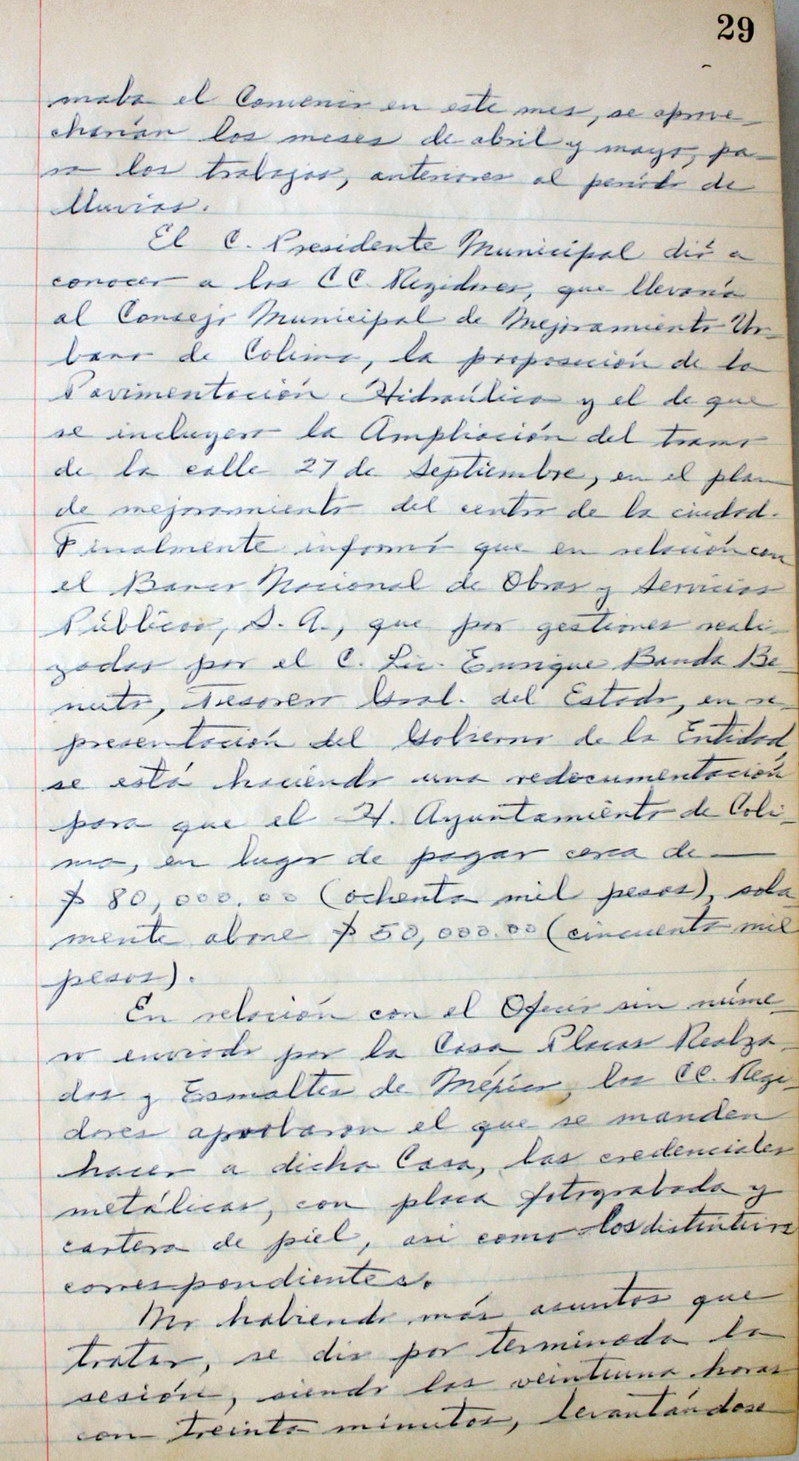 29
maba el Convenio en este mes, se aprove-
charían los meses de abril y mayo, pa-
ra los trabajos, anteriores al período de
lluvias.
El C. Presidente Municipal dió a
conocer a los CC. Regidores, que llevaría
al Consejo Municipal de Mejoramiento Ur-
bano de Colima, la proposición de la
Pavimentación Hidraúlica y el de que
se incluyera la Ampliación del tramo
de la calle 27 de Septiembre, en el plan
de mejoramiento del centro de la ciudad.
Finalmente informó que en relación con
el Banco Nacional de Obras y Servicios
Públicos, S. A., que por gestiones reali-
zadas por el C. Lic. Enrique Banda Be-
nuto, Tesorero Gral. del Estado, en re-
presentación del Gobierno de la Entidad,
se está haciendo una redocumentación
para que el H. Ayuntamiento de Coli-
ma, en lugar de pagar cerca de —
$ 80,000.00 (ochenta mil pesos), sola-
mente abone $ 50,000.00 (cincuenta mil
pesos).
En relación con el Oficio sin núme-
ro enviado por la Casa Placas Realza-
das y Esmaltes de México, los CC. Regi-
dores aprobaron el que se manden
hacer a dicha Casa, las credenciales
metálicas, con placa fotograbada y
cartera de piel, asi como los distintivos
correspondientes.
No habiendo más asuntos que
tratar, se dio por terminada la
sesión, siendo las veintiuna horas
con treinta minutos, levantándose